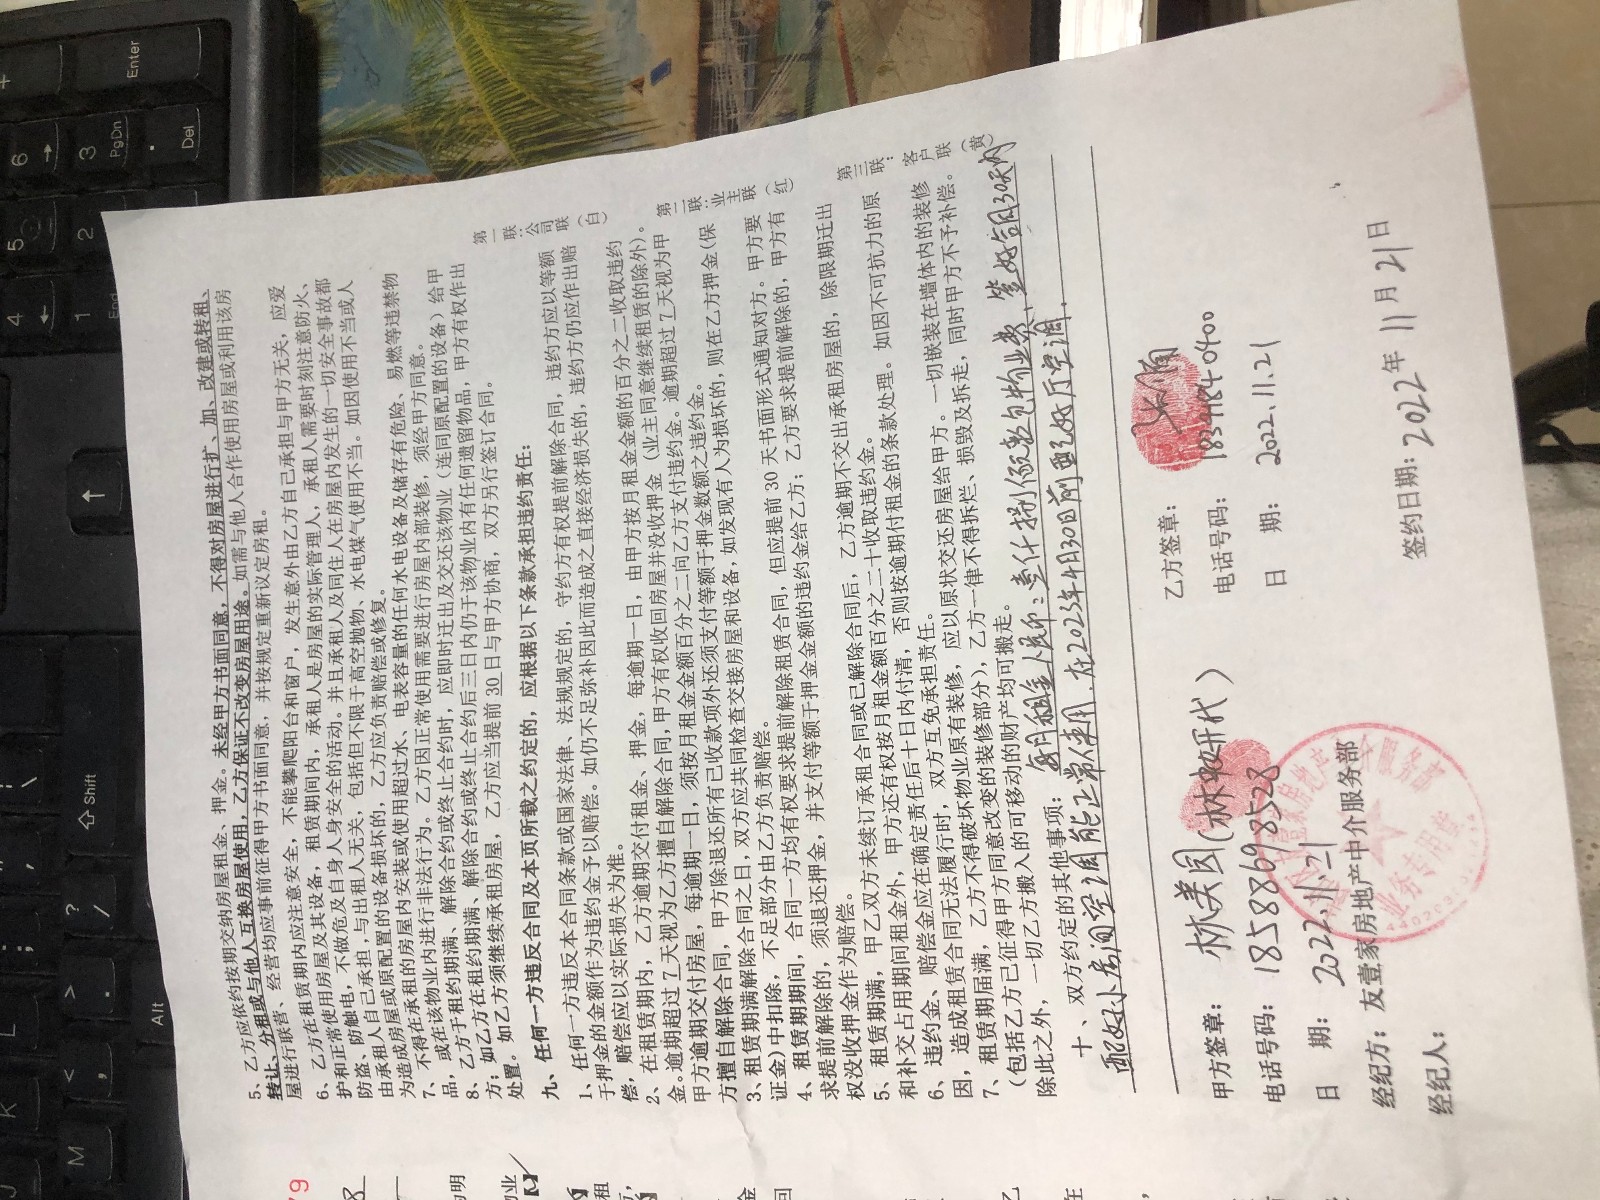 5、乙方应依约按期交纳房屋租金、押金。未经甲方书面同意，不得对房屋进行扩、加、改建或转租、
转让、分租或与他人互换房屋使用，乙方保证不改变房屋用途。如需与他人合作使用房屋或利用该房
屋进行联营、经营均应事前征得甲方书面同意，并按规定重新议定房租。
6、乙方在租赁期内应注意安全，不能攀爬阳台和窗户，发生意外由乙方自己承担与甲方无关，应爱
护和正常使用房屋及其设备，租赁期间内，承租人是房屋的实际管理人，承租人需要时刻注意防火、
防盗、防触电，不做危及自身人身安全的活动。并且承租人及同住人在房屋内发生的一切安全事故都
由承租人自己承担，与出租人无关，包括但不限于高空抛物、水电煤气使用不当。如因使用不当或人
为造成房屋或原配置的设备损坏的，乙方应负责赔偿或修复。
7、不得在承租的房屋内安装或使用超过水、电表容量的任何水电设备及储存有危险、易燃等违禁物
品，或在该物业内进行非法行为。乙方因正常使用需要进行房屋内部装修，须经甲方同意。
8、乙方于租约期满、解除合约或终止合约时，应即时迁出及交还该物业（连同原配置的设备）给甲
方；如乙方在租约期满、解除合约或终止合约后三日内仍于该物业内有任何遗留物品，甲方有权作出
处置。如乙方须继续承租房屋，乙方应当提前 30 日与甲方协商，双方另行签订合同。
九、任何一方违反合同及本页所载之约定的，应根据以下条款承担违约责任：
1、任何一方违反本合同条款或国家法律、法规规定的，守约方有权提前解除合同，违约方应以等额
于押金的金额作为违约金予以赔偿。如仍不足弥补因此而造成之直接经济损失的，违约方仍应作出赔
偿，赔偿应以实际损失为准。
2、在租赁期内，乙方逾期交付租金、押金，每逾期一日，由甲方按月租金金额的百分之二收取违约
金。逾期超过 7 天视为乙方擅自解除合同，甲方有权收回房屋并没收押金（业主同意继续租赁的除外）。
甲方逾期交付房屋，每逾期一日，须按月租金金额百分之二向乙方支付违约金。逾期超过 7 天视为甲
方擅自解除合同，甲方除退还所有已收款项外还须支付等额于押金数额之违约金。
3、租赁期满解除合同之日，双方应共同检查交接房屋和设备，如发现有人为损坏的，则在乙方押金（保
证金）中扣除，不足部分由乙方负责赔偿。
4、租赁期期间，合同一方均有权要求提前解除租赁合同，但应提前 30 天书面形式通知对方。甲方要
求提前解除的，须退还押金，并支付等额于押金金额的违约金给乙方；乙方要求提前解除的，甲方有
权没收押金作为赔偿。
5、租赁期满，甲乙双方未续订承租合同或已解除合同后，乙方逾期不交出承租房屋的，除限期迁出
和补交占用期间租金外，甲方还有权按月租金额百分之二十收取违约金。
6、违约金、赔偿金应在确定责任后十日内付清，否则按逾期付租金的条款处理。如因不可抗力的原
因，造成租赁合同无法履行时，双方互免承担责任。
7、租赁期届满，乙方不得破坏物业原有装修，应以原状交还房屋给甲方。一切嵌装在墙体内的装修
（包括乙方已征得甲方同意改变的装修部分），乙方一律不得拆烂、损毁及拆走，同时甲方不予补偿。
除此之外，一切乙方搬入的可移动的财产均可搬走。
十、双方约定的其他事项：每月租金人民币：壹仟捌佰
配好小房间空调能正常使用，在2023年4月30日前配好厅空调.
第一联：公司联（白）
第二联：业主联（红）
第三联：客户联（黄）
甲方签章：林美园（林妍代）
电话号码：18588698528
日 期：2022.11.21
经纪方：友壹家房地产中介服务部
经纪人：
乙方签章：
电话号码：
日 期：2022.11.21
签约日期：2022年11月21日
业务专用章
Enter
PgDn
Del
End
Shift
Alt